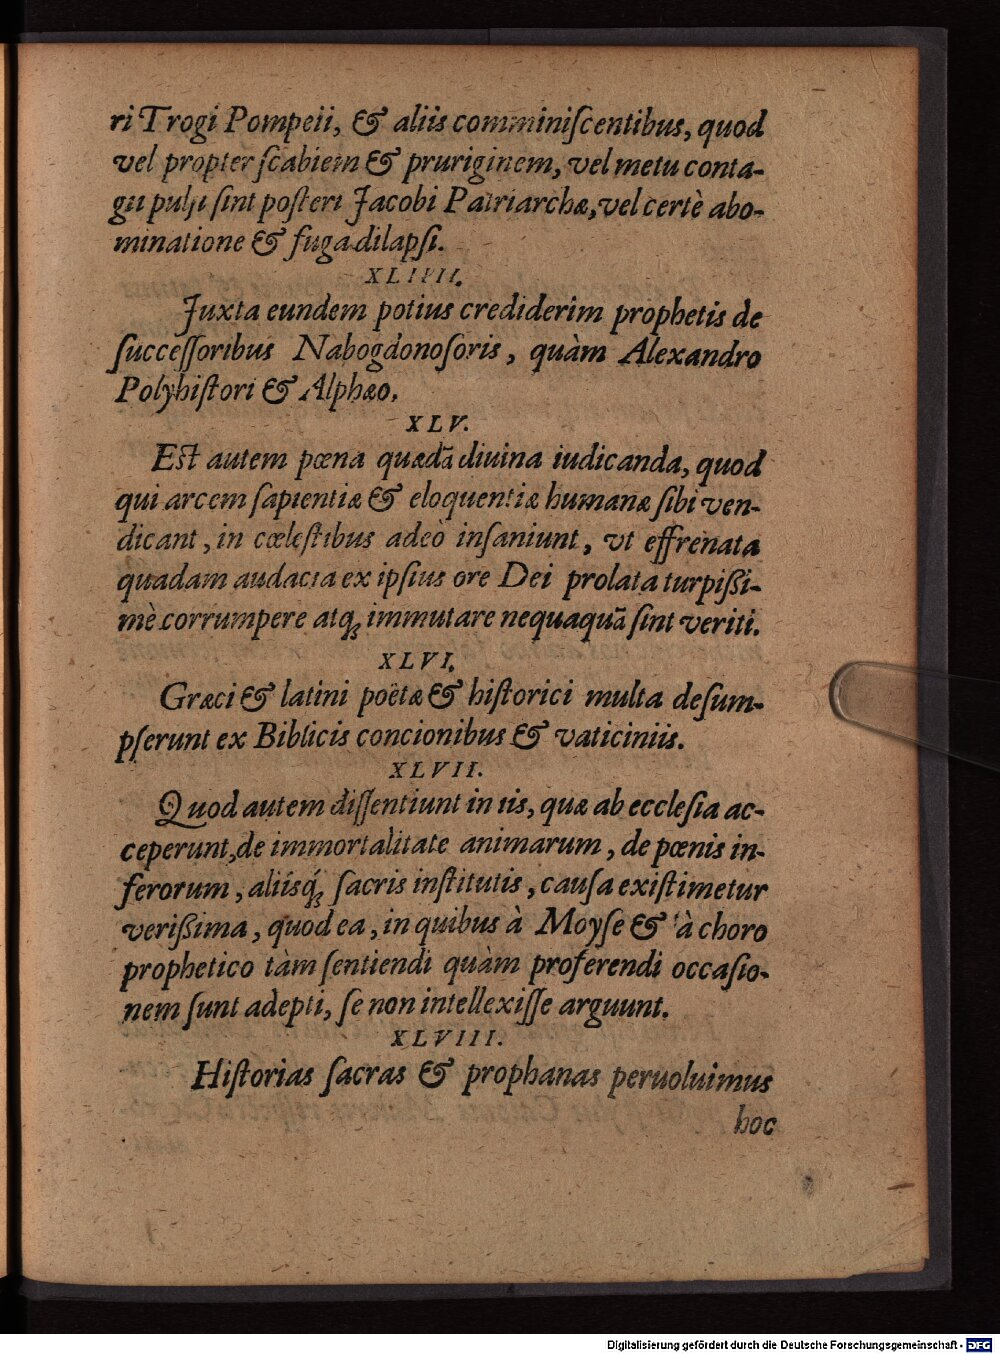 ri Trogi Pompeii, & aliis comminiſcentibus, quod
vel propter ſcabiem & pruriginem, vel metu conta-
gii pulſi ſint poſteri Jacobi Patriarchæ, vel certè abo-
minatione & fuga dilapſi.
XLIIII.
Juxta eundem potius crediderim prophetis de
ſucceſſoribus Nabogdonoſoris, quàm Alexandro
Polyhiſtori & Alphæo.
XLV.
Eſt autem pœna quædã diuina iudicanda, quod
qui arcem ſapientiæ & eloquentiæ humanæ ſibi ven-
dicant, in cœleſtibus adeò inſaniunt, vt effrenata
quadam audacia ex ipſius ore Dei prolata turpißi-
mè corrumpere atq; immutare nequaquã ſint veriti.
XLVI.
Græci & latini poëtæ & hiſtorici multa deſum-
pſerunt ex Biblicis concionibus & vaticiniis.
XLVII.
Quod autem diſſentiunt in iis, quæ ab eccleſia ac-
ceperunt, de immortalitate animarum, de pœnis in-
ferorum, aliisq́; ſacris inſtitutis, cauſa exiſtimetur
verißima, quod ea, in quibus à Moyſe & à choro
prophetico tàm ſentiendi quàm proferendi occaſio-
nem ſunt adepti, ſe non intellexiſſe arguunt.
XLVIII.
Hiſtorias ſacras & prophanas peruoluimus
hoc
Digitalisierung gefördert durch die Deutsche Forschungsgemeinschaft - DFG